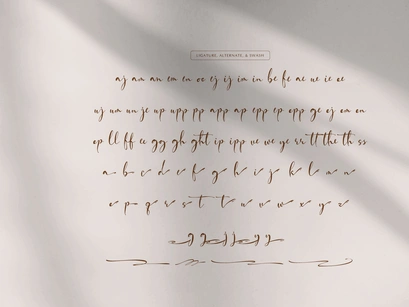 LIGATURE, ALTERNATE, & SWASH
aj am an em en oo ej ij im in be fe ac we ie oe
uj um un je up upp pp app ap epp ep opp ge oj om on
op ll ff ee gg gh ght ip ipp ve we ye rr tt the th ss
a b c d e f g h i j k l m n
o p q r s t t u v w x y z